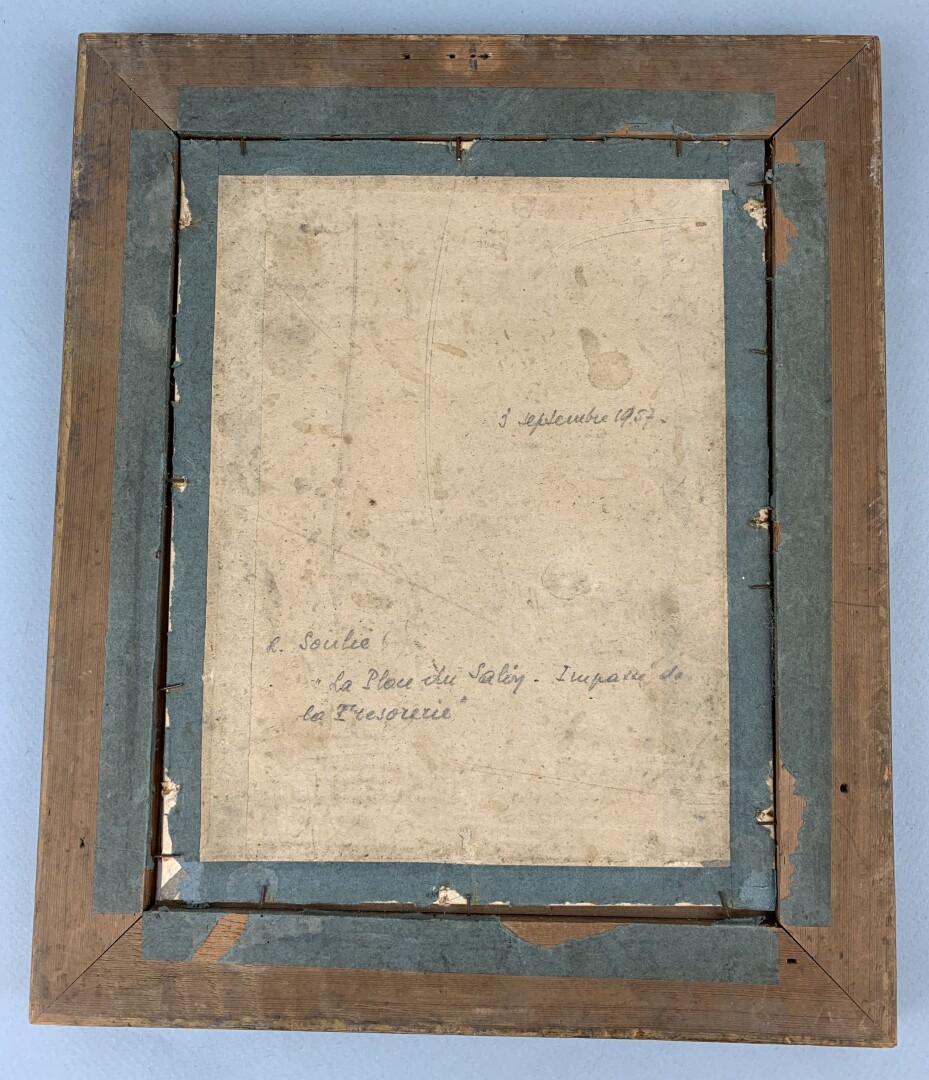 3 septembre 1957.
R. Soulié
"La Place du Salin - Impasse de
la Trésorerie"